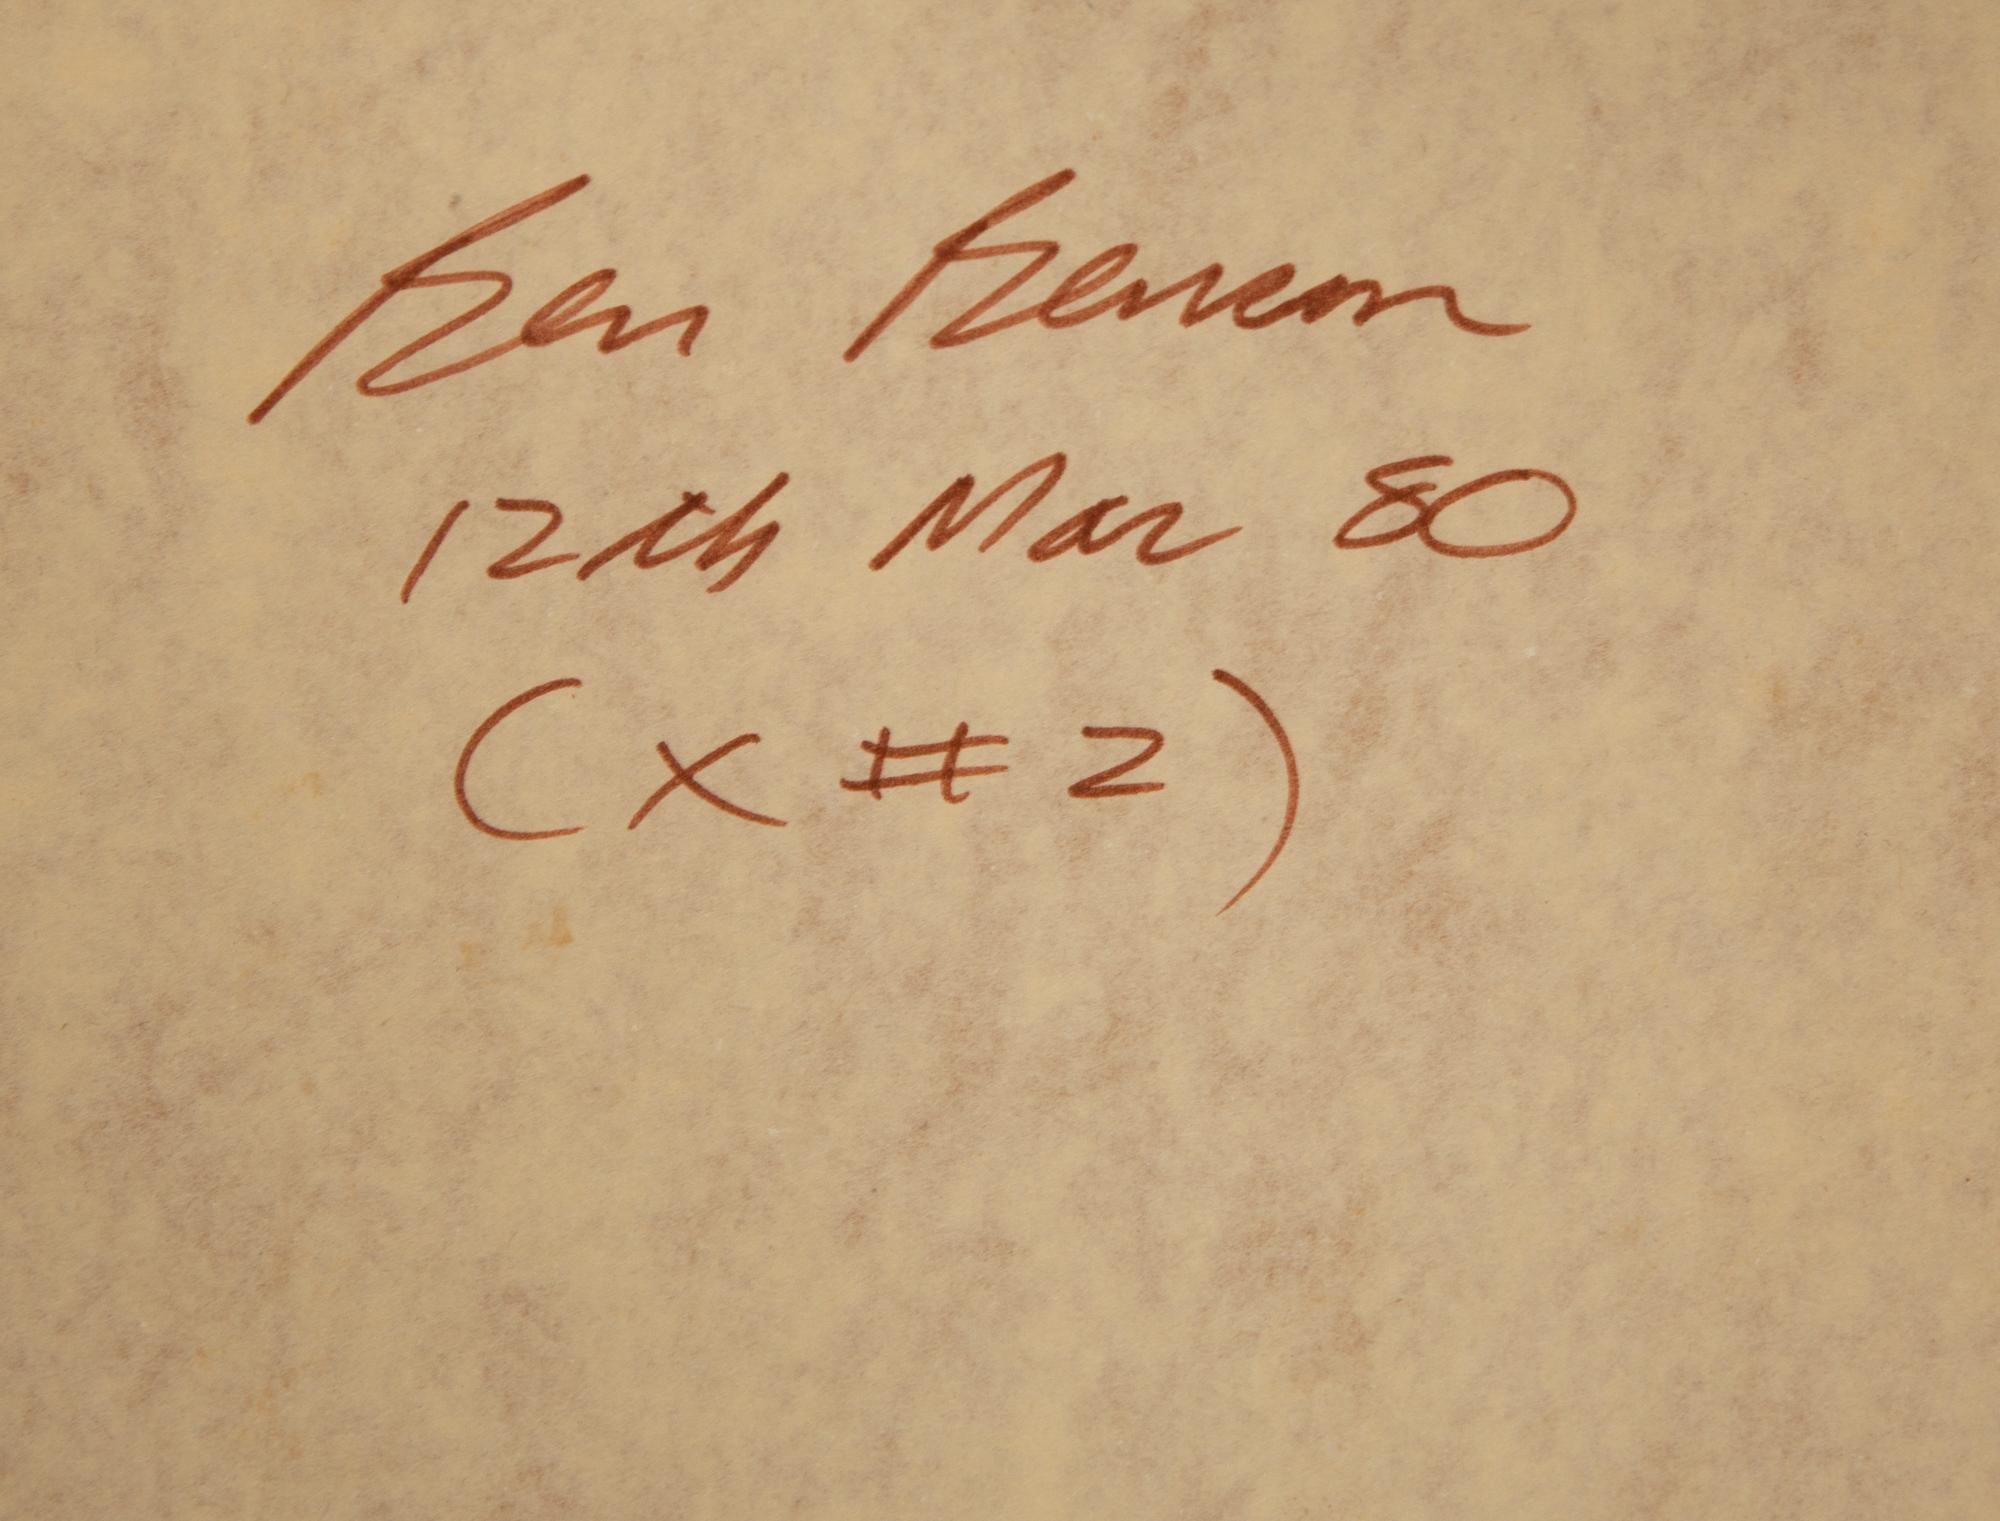 Ken
12th Mar 80
(X # 2)